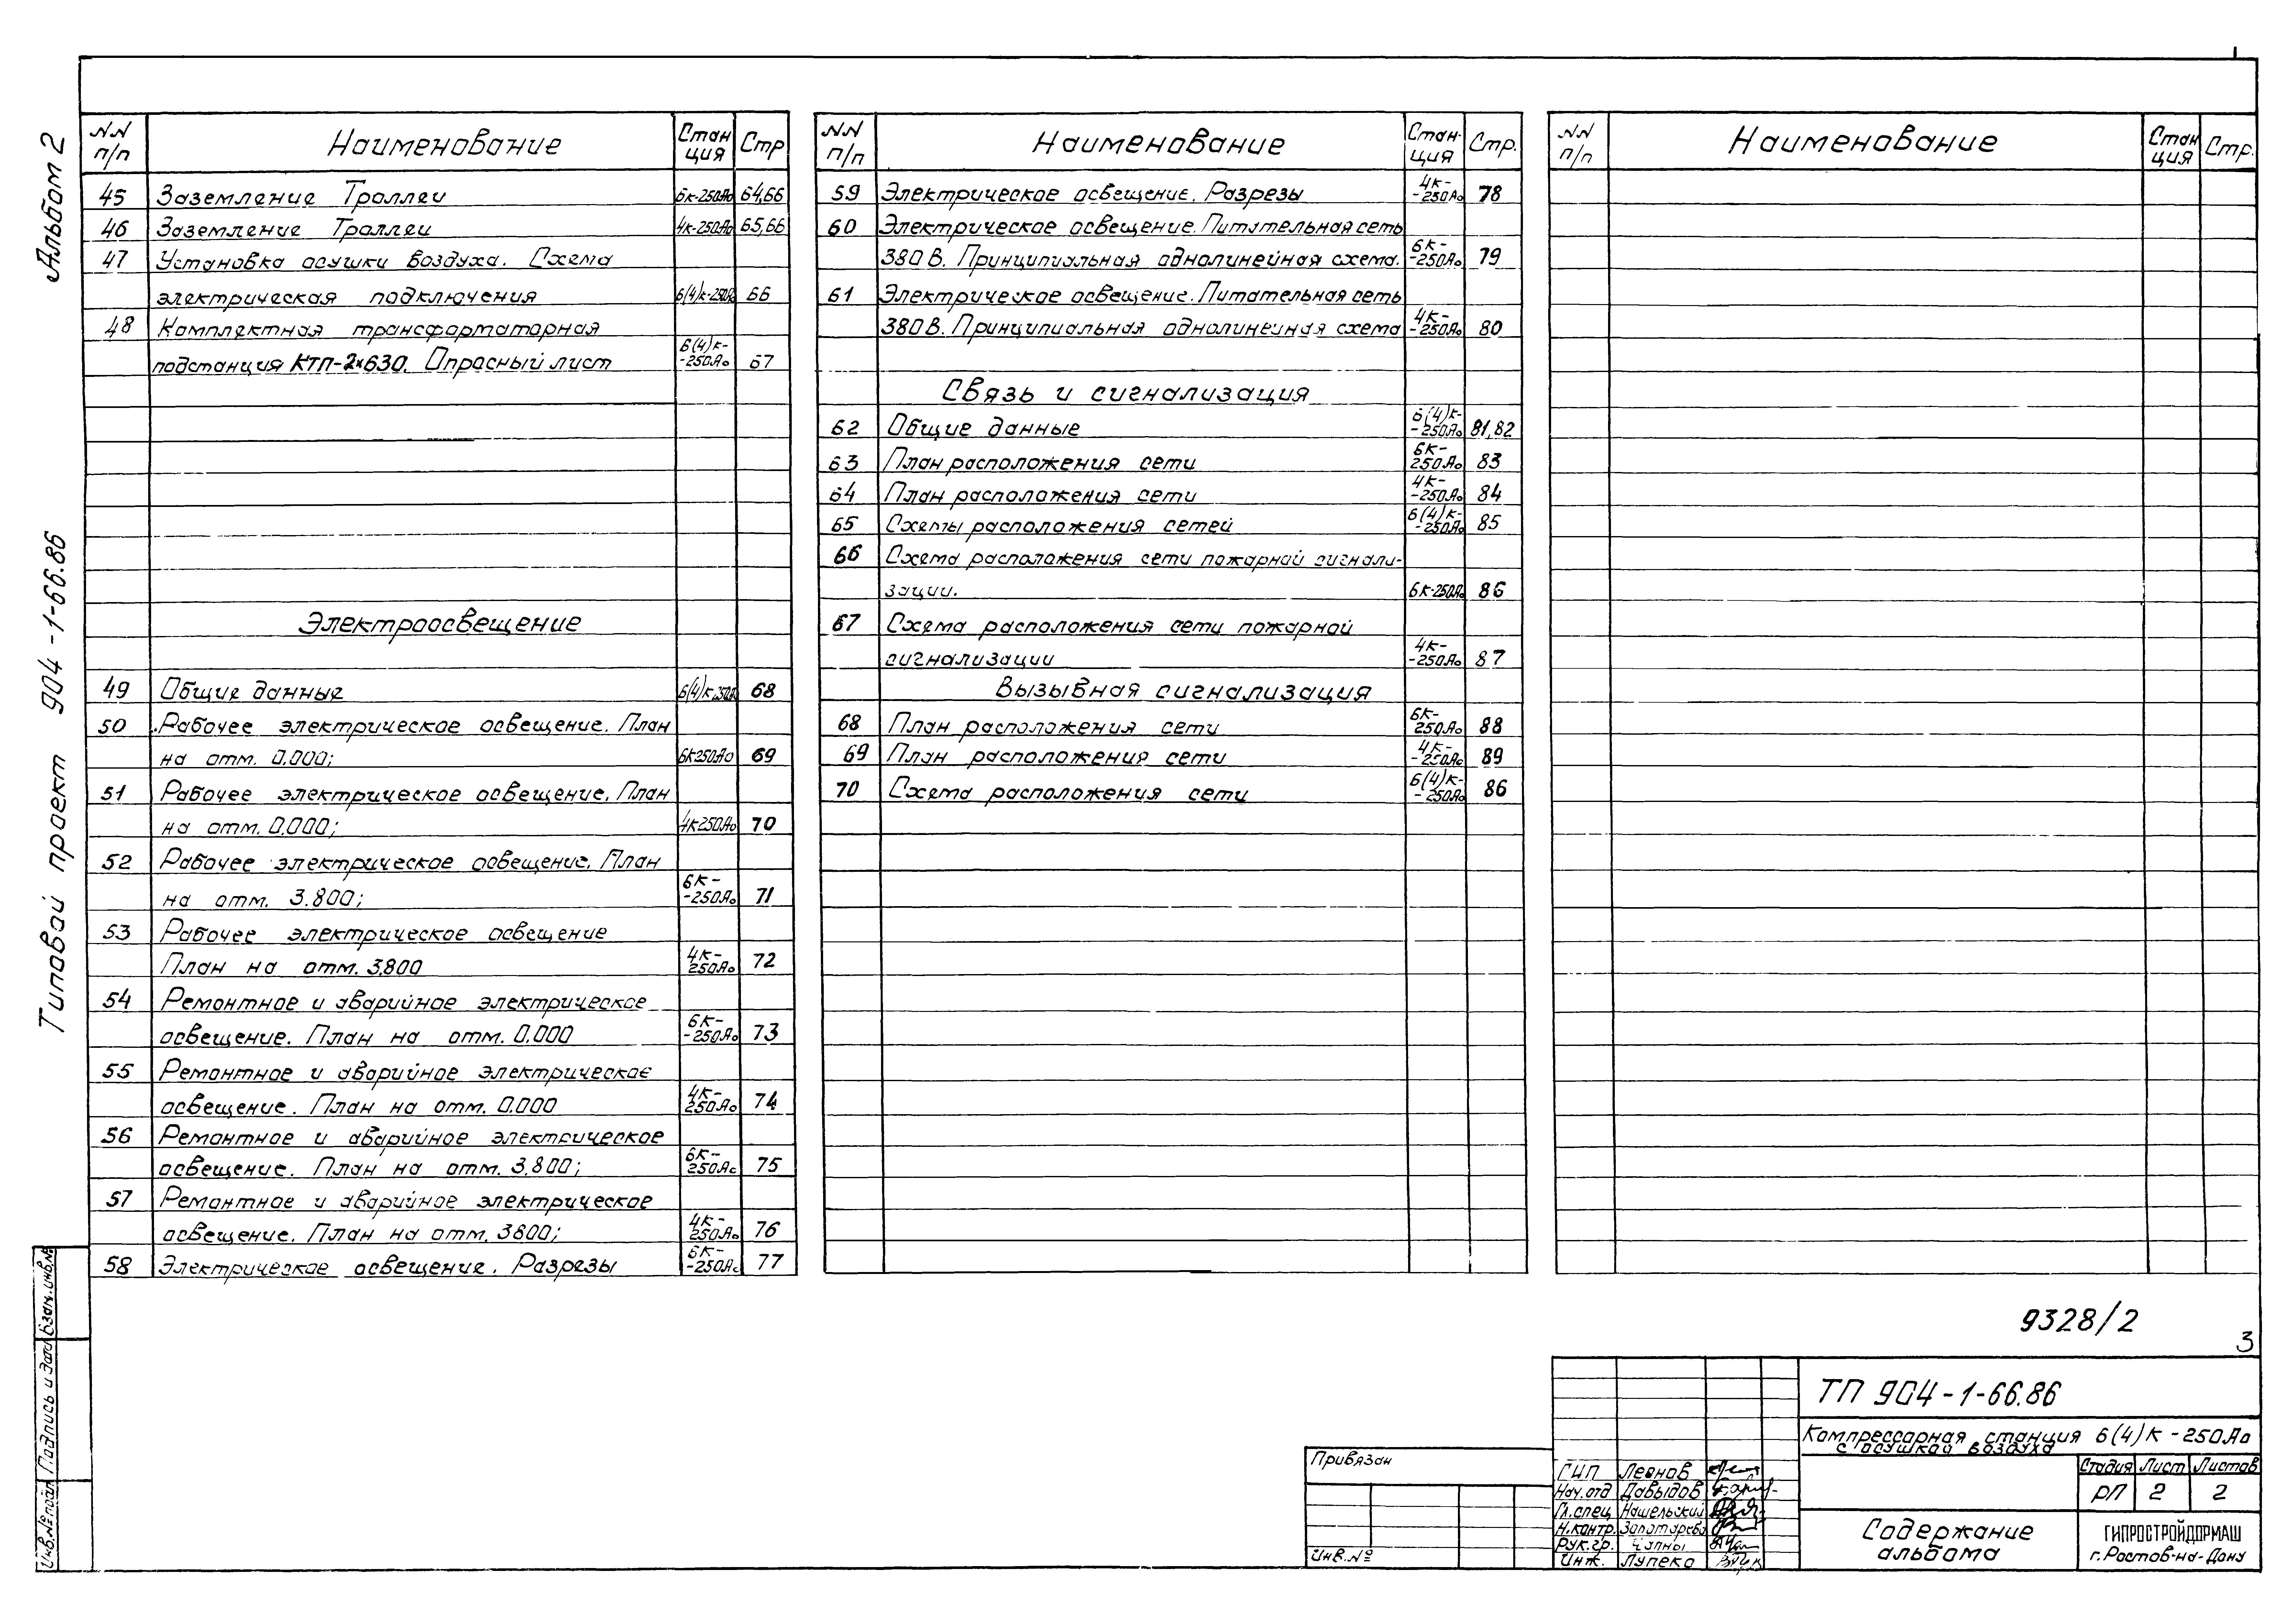 Альбом 2
Типовой проект 904-1-66.86
NN п/п Наименование Стан ция Стр
45 Заземление Троллеи 6К-250Ао 64,66
46 Заземление Троллеи 4К-250Ао 65,66
47 Установка осушки воздуха. Схема
электрическая подключения 6(4)К-250Ао 66
48 Комплектная трансформаторная
подстанция КТП-2х630. Опросный лист 6(4)К--250Ао 67
Электроосвещение
49 Общие данные 6(4)К-250Ао 68
50 Рабочее электрическое освещение. План
на отм. 0.000; 6К250Ао 69
51 Рабочее электрическое освещение. План
на отм. 0.000; 4К250Ао 70
52 Рабочее электрическое освещение. План
на отм. 3.800; 6К--250Ао 71
53 Рабочее электрическое освещение
План на отм. 3.800 4К-250Ао 72
54 Ремонтное и аварийное электрическое
освещение. План на отм. 0.000 6К--250Ао 73
55 Ремонтное и аварийное электрическое
освещение. План на отм. 0.000 4К-250Ао 74
56 Ремонтное и аварийное электрическое
освещение. План на отм. 3.800; 6К-250Ао 75
57 Ремонтное и аварийное электрическое
освещение. План на отм. 3800; 4К-250Ао 76
58 Электрическое освещение. Разрезы 6К--250Ао 77
NN п/п Наименование Стан-ция Стр.
59 Электрическое освещение. Разрезы 4К--250Ао 78
60 Электрическое освещение. Питательная сеть
380 В. Принципиальная однолинейная схема. 6К--250Ао 79
61 Электрическое освещение. Питательная сеть
380 В. Принципиальная однолинейная схема 4К--250Ао 80
Связь и сигнализация
62 Общие данные 6(4)К--250Ао 81,82
63 План расположения сети 6К-250Ао 83
64 План расположения сети 4К--250Ао 84
65 Схемы расположения сетей 6(4)К--250Ао 85
66 Схема расположения сети пожарной сигнали-
зации. 6К-250Ао 86
67 Схема расположения сети пожарной
сигнализации 4К--250Ао 87
Вызывная сигнализация
68 План расположения сети 6К-250Ао 88
69 План расположения сети 4К--250Ао 89
70 Схема расположения сети 6(4)К--250Ао 86
NN п/п Наименование Стан ция Стр.
9328/2
3
ТП 904-1-66.86
Компрессорная станция 6(4)К-250Ао
с осушкой воздуха
Стадия Лист Листов
РП 2 2
Содержание
альбома
ГИПРОСТРОЙДОРМАШ
г. Ростов-на-Дону
ГИП Леонов
Нач.отд Давыдов
Гл.спец Нашельский
Н.контр. Золотарева
Рук.гр. Чапны
Инж. Лупеко
Привязан
Инв.№
Взам.инв.№
Подпись и дата
Инв.№ подл.